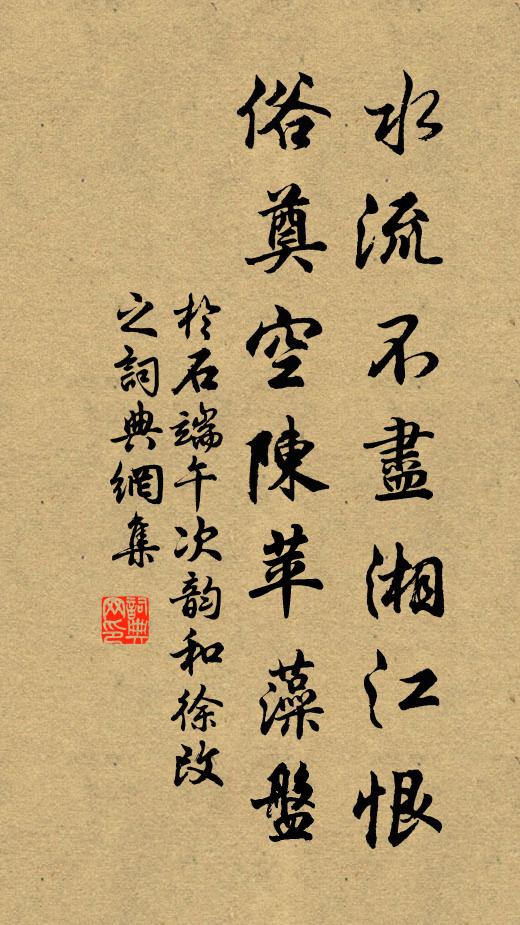 水流不盡湘江恨
俗奠空陳苹藻盤
於石端午次韵和徐改
之詞典網集
詞典網印